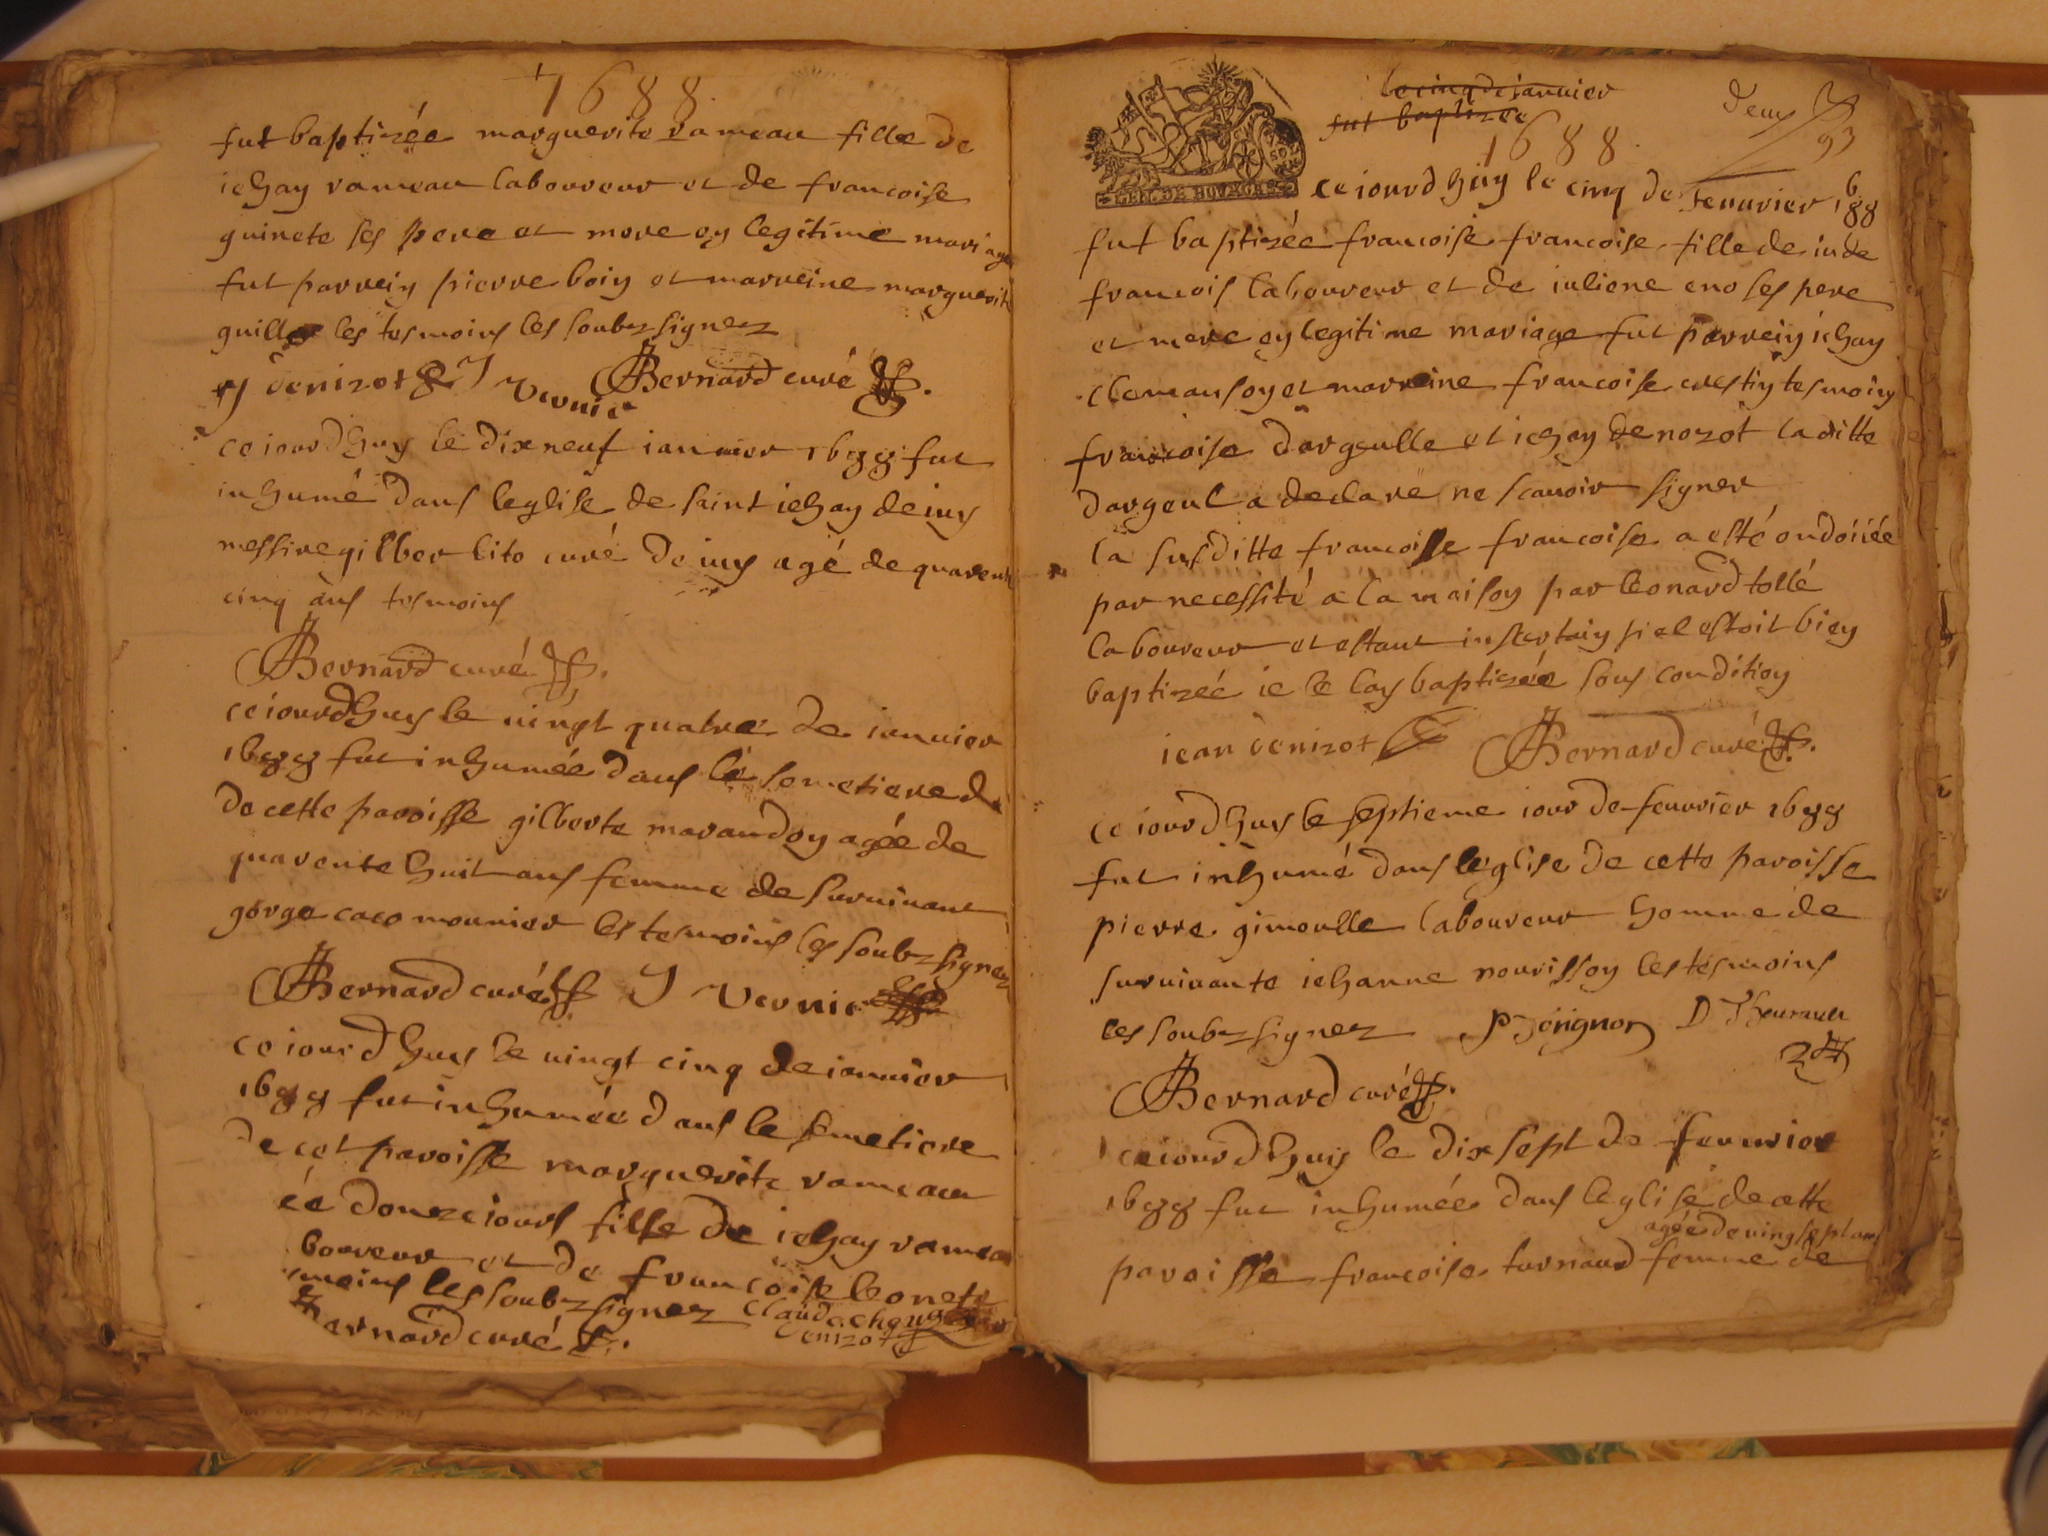 1688
fut baptizée marguerite rameau fille de
iehan rameau laboureur et de francoise
guinete ses pere et mere en legitime mariage
fut parrein pierre boin et marreine marguerite
guille les tesmoins les soubz signez
denizot J Vernie Bernard curé
ce iourdhuy le dix neuf ianuier 1688 fut
inhumé dans leglise de saint iehan deiuy
messire gilber lito curé de iuy agé de quarente
cinq ans tesmoins
Bernard curé
ce iourdhuy le uingt quatre de ianuier
1688 fut inhumée dans le semetiere de
de cette paroisse gilberte marandon agée de
quarente huit ans femme de suruiuant
gorge caco mounier les tesmoins les soubz signez
Bernard curé J Vernie
ce iourdhuy le uingt cinq de ianuier
1688 fut inhumée dans le semetiere
de cet paroisse marguerite rameau
ée douze iours fille de iehan ramea
boureur et de francoise leonete
moins les soubz signez claude
denizot
Bernard curé
le cinq de ianuier
fut baptizée
deux
93
1688
GEN. DE BOURGES
ce iourdhuy le cinq de feuurier 1688
fut baptizée francoise francoise fille de iude
francois laboureur et de iuliene eno ses pere
et mere en legitime mariage fut parrein iehan
clemanson et marreine francoise crestin tesmoins
francoise dargeulle et iehan denozot laditte
dargeul a declare ne scauoir signer
la susditte francoise francoise a esté ondoiiée
par necessité a la maison par leonard tollé
laboureur et estant insertain si el estoit bien
baptizée ie le lay baptizée sous condition
iean denizot Bernard curé
ce iourdhuy le septieme iour de feuurier 1688
fut inhumé dans leglise de cette paroisse
pierre gimoulle laboureur homme de
suruiuante iehanne nourisson les tesmoins
les soubz signez P Jorignon D Theurault
Bernard curé
ce iourdhuy le dix sept de feuurier
1688 fut inhumée dans leglise de cette
agée de uing sept ans
paroisse francoise turnaud femme de